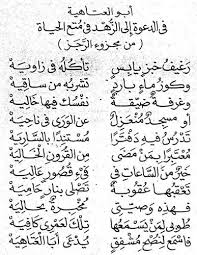 أبو العتاهية
في الدعوة إلى الزهد في متع الحياة
( من مجزوء الرجز )
رغيف خبز يابس تأكله في زاوية
وكوز ماء بارد تشربه من ساقية
وغرفة ضيقة نفسك فيها خالية
أو مسجد بمنعزل عن الورى في ناحية
تدرس فيه دفترا مستندا بسارية
معتبرا بمن مضى من القرون الخالية
خير من الساعات في فيء قصور عالية
تعقبها عقوبة تصلى بنار حامية
فهذه وصيتي مخبرة بحالية
طوبى لمن يسمعها تلك لعمري كافية
فاسمع لنصح مشفق يدعى أبا العتاهية